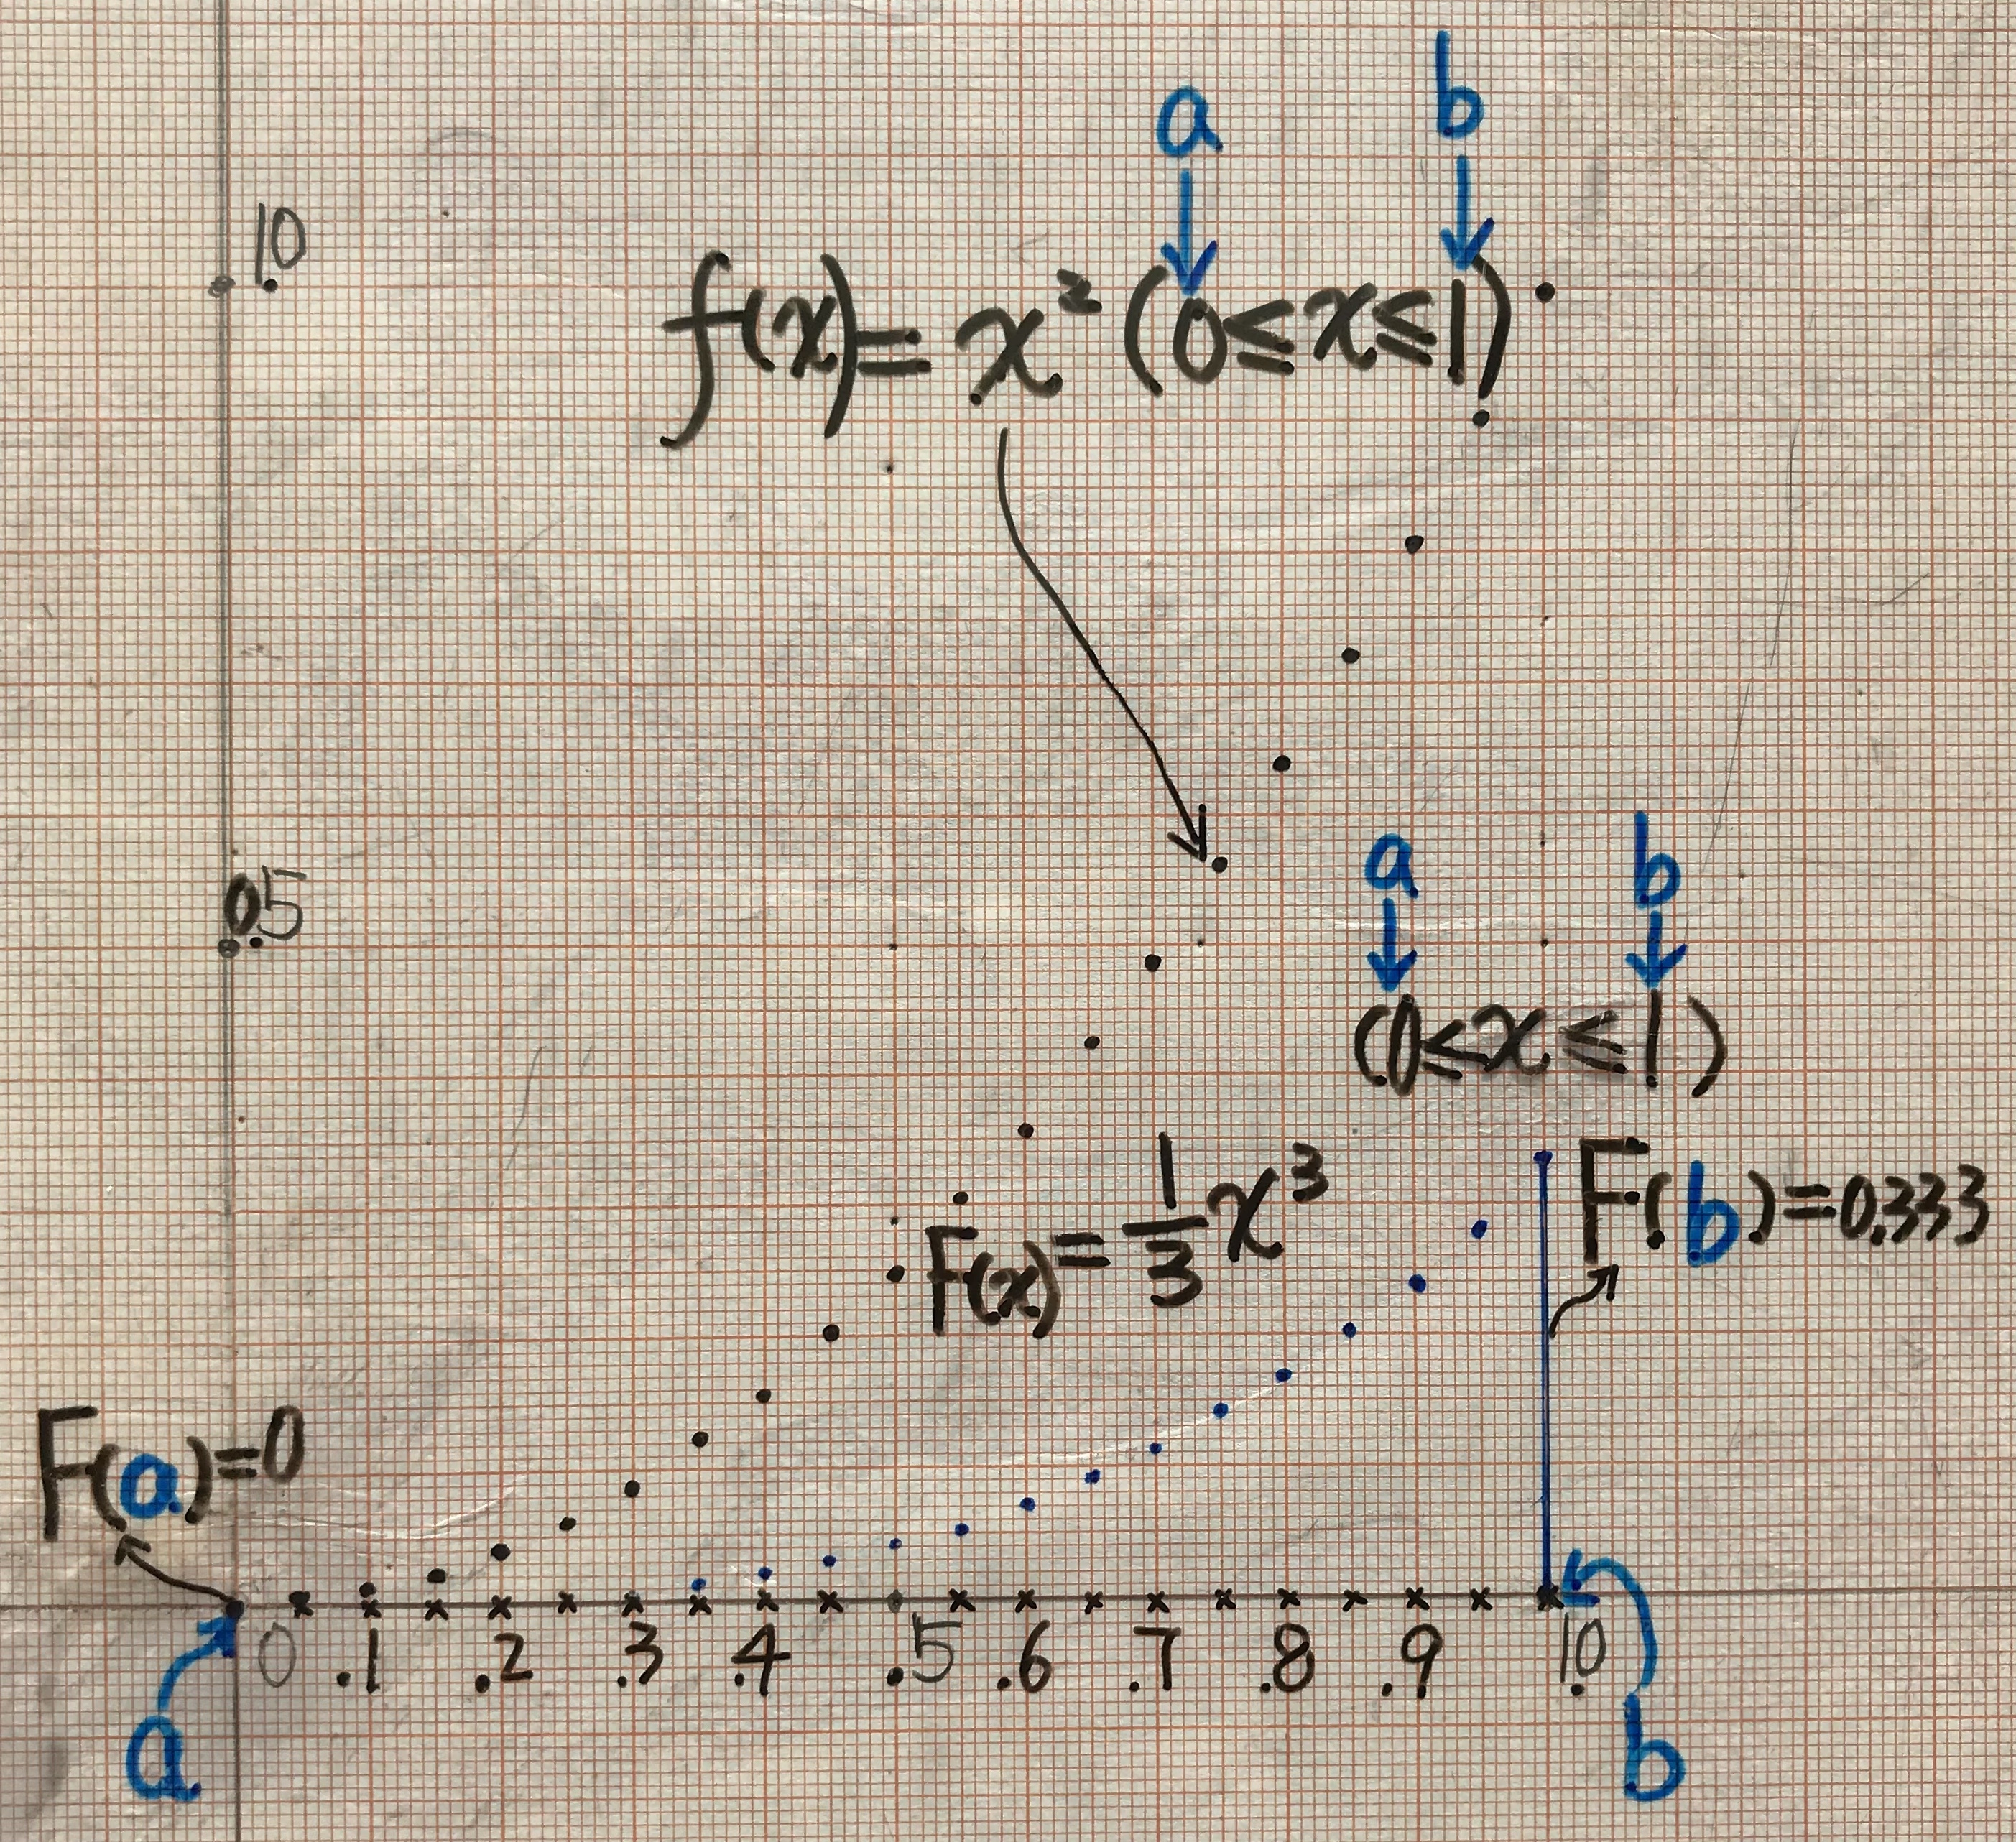 a b
1.0
f(x)=x² (0≤x≤1)
a b
0.5
(0≤x≤1)
F(x)=1/3 x³
F(b)=0.333
F(a)=0
0 .1 .2 .3 .4 .5 .6 .7 .8 .9 1.0
a b